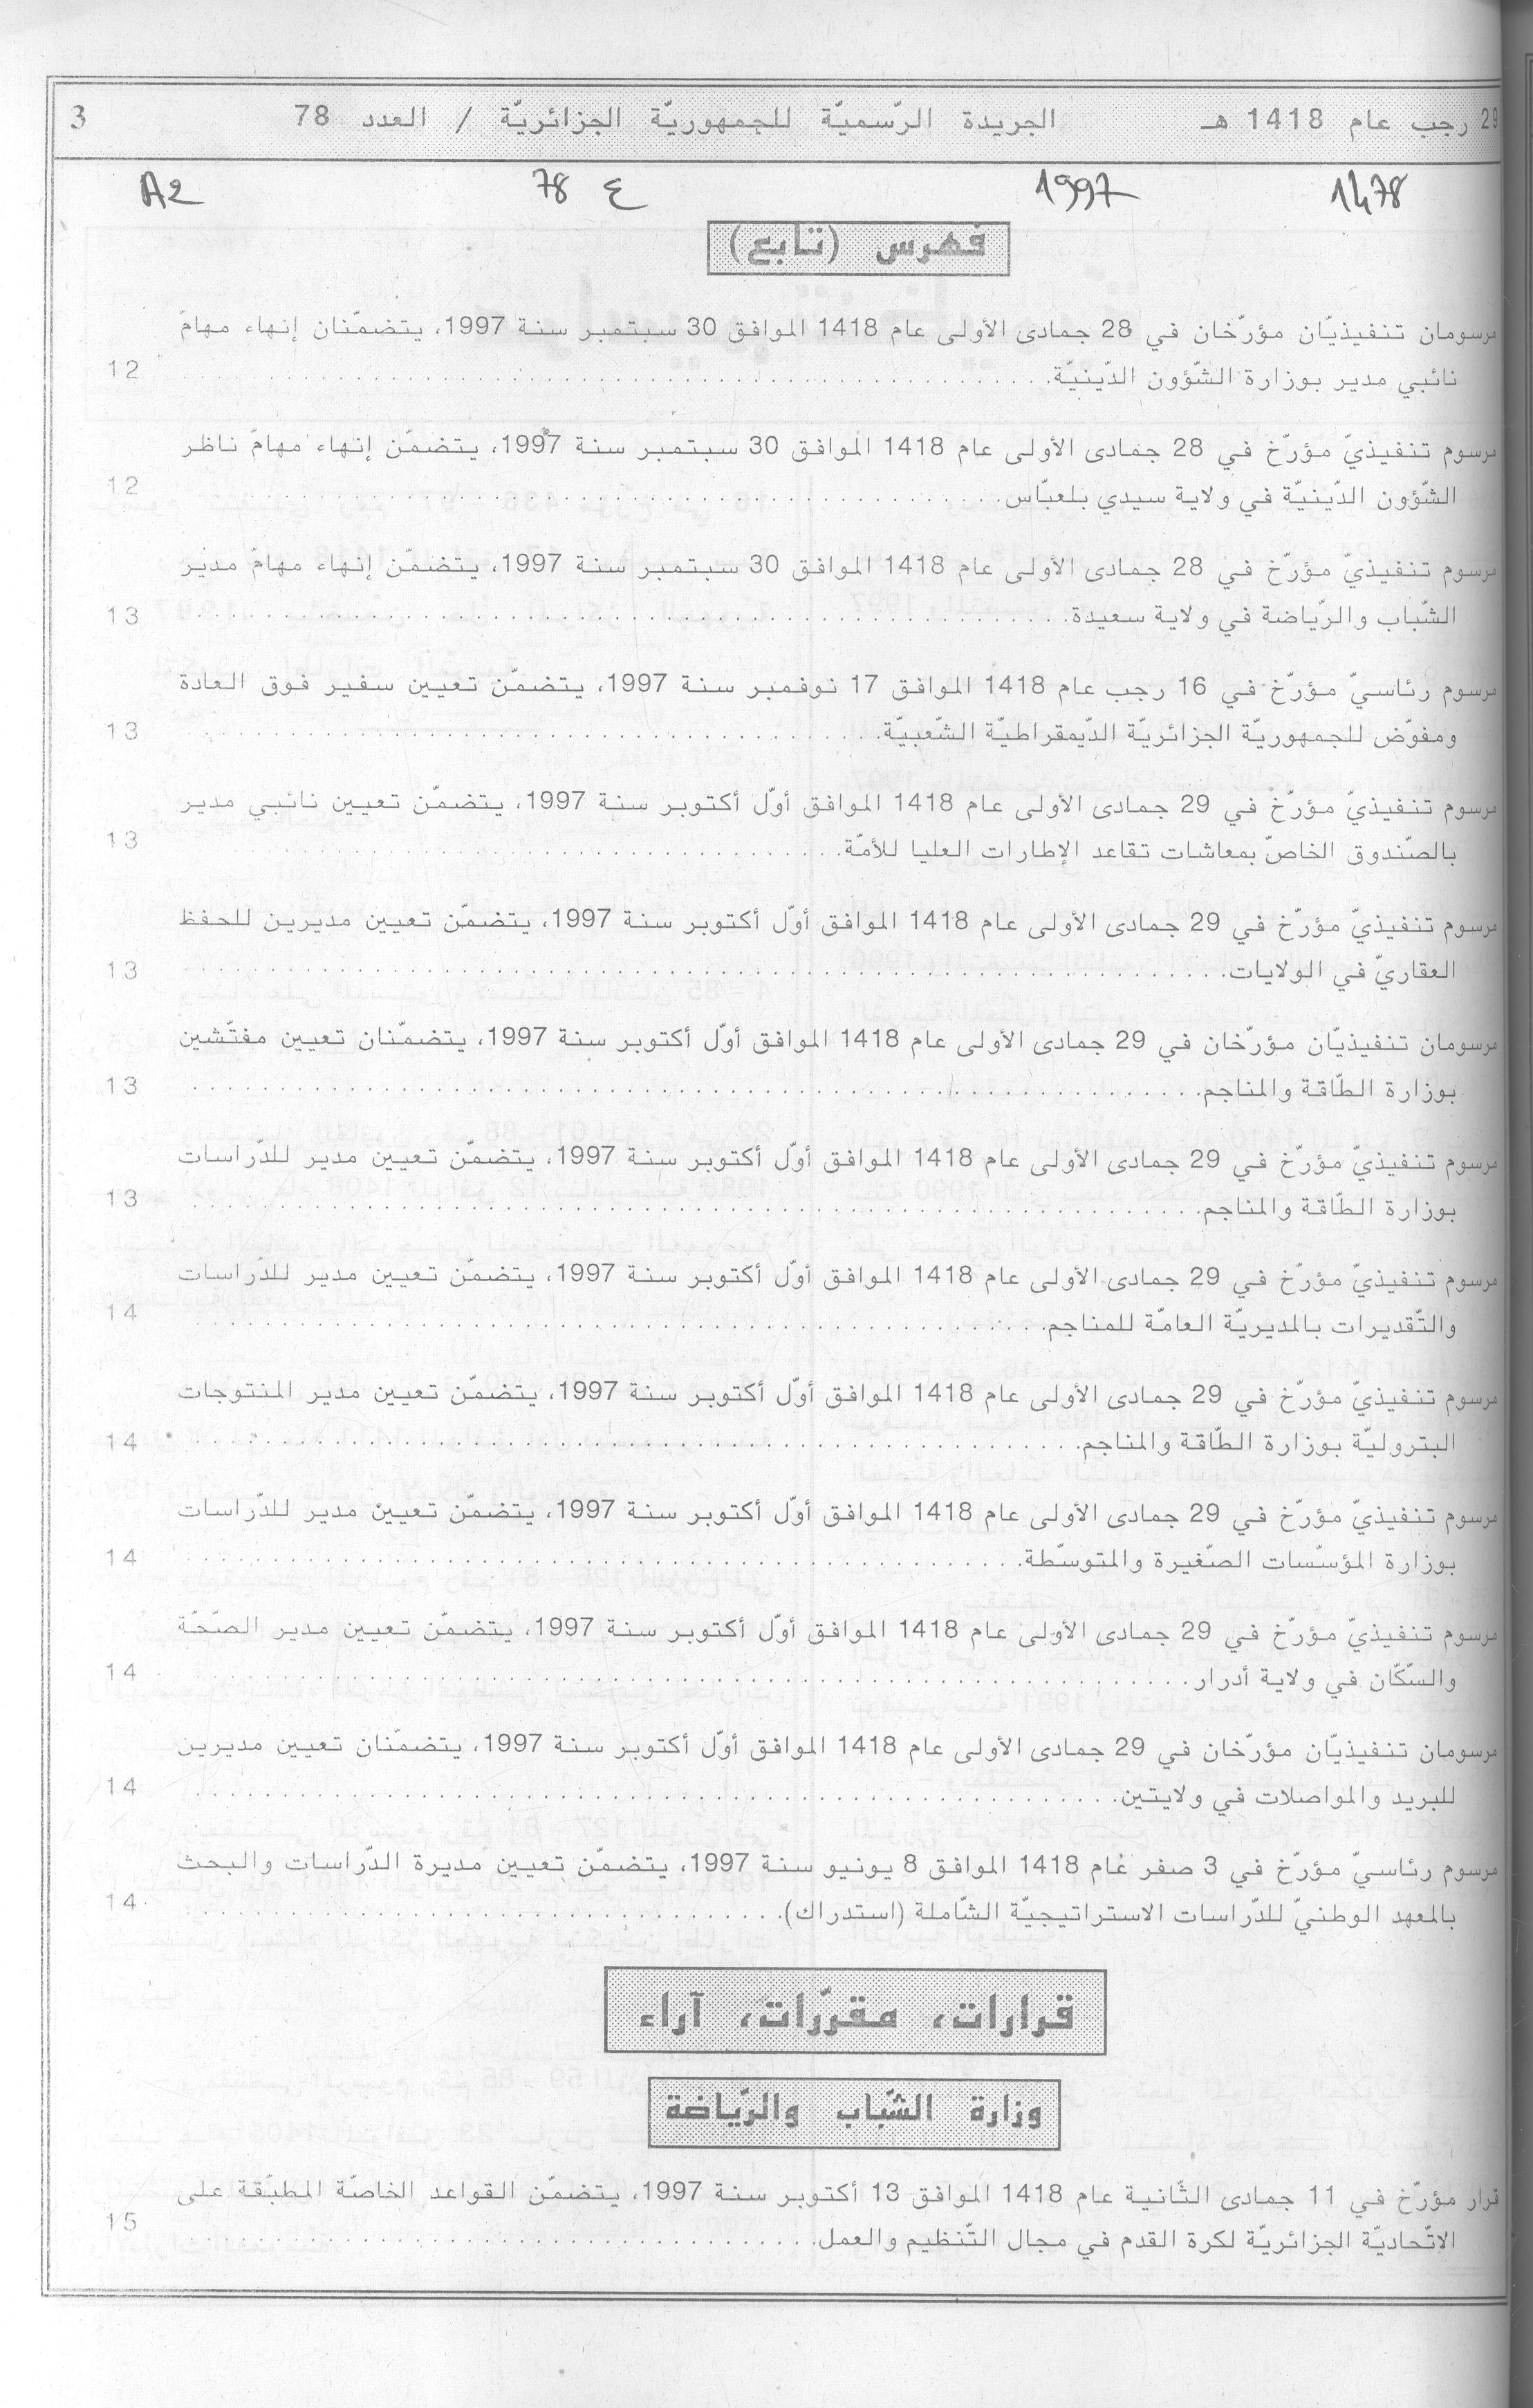 29 رجب عام 1418 هـ الجريدة الرّسميّة للجمهوريّة الجزائريّة / العدد 78 3
1478 1997 78 ع A2
فهرس (تابع)
مرسومان تنفيذيّان مؤرّخان في 28 جمادى الأولى عام 1418 الموافق 30 سبتمبر سنة 1997، يتضمّنان إنهاء مهامّ
نائبي مدير بوزارة الشّؤون الدّينيّة. 12
مرسوم تنفيذيّ مؤرّخ في 28 جمادى الأولى عام 1418 الموافق 30 سبتمبر سنة 1997، يتضمّن إنهاء مهامّ ناظر
الشّؤون الدّينيّة في ولاية سيدي بلعبّاس. 12
مرسوم تنفيذيّ مؤرّخ في 28 جمادى الأولى عام 1418 الموافق 30 سبتمبر سنة 1997، يتضمّن إنهاء مهامّ مدير
الشّباب والرّياضة في ولاية سعيدة. 13
مرسوم رئاسيّ مؤرّخ في 16 رجب عام 1418 الموافق 17 نوفمبر سنة 1997، يتضمّن تعيين سفير فوق العادة
ومفوّض للجمهوريّة الجزائريّة الدّيمقراطيّة الشّعبيّة. 13
مرسوم تنفيذيّ مؤرّخ في 29 جمادى الأولى عام 1418 الموافق أوّل أكتوبر سنة 1997، يتضمّن تعيين نائبي مدير
بالصّندوق الخاصّ بمعاشات تقاعد الإطارات العليا للأمّة. 13
مرسوم تنفيذيّ مؤرّخ في 29 جمادى الأولى عام 1418 الموافق أوّل أكتوبر سنة 1997، يتضمّن تعيين مديرين للحفظ
العقاريّ في الولايات. 13
مرسومان تنفيذيّان مؤرّخان في 29 جمادى الأولى عام 1418 الموافق أوّل أكتوبر سنة 1997، يتضمّنان تعيين مفتّشين
بوزارة الطّاقة والمناجم. 13
مرسوم تنفيذيّ مؤرّخ في 29 جمادى الأولى عام 1418 الموافق أوّل أكتوبر سنة 1997، يتضمّن تعيين مدير للدّراسات
بوزارة الطّاقة والمناجم. 13
مرسوم تنفيذيّ مؤرّخ في 29 جمادى الأولى عام 1418 الموافق أوّل أكتوبر سنة 1997، يتضمّن تعيين مدير للدّراسات
والتّقديرات بالمديريّة العامّة للمناجم. 14
مرسوم تنفيذيّ مؤرّخ في 29 جمادى الأولى عام 1418 الموافق أوّل أكتوبر سنة 1997، يتضمّن تعيين مدير المنتوجات
البتروليّة بوزارة الطّاقة والمناجم. 14
مرسوم تنفيذيّ مؤرّخ في 29 جمادى الأولى عام 1418 الموافق أوّل أكتوبر سنة 1997، يتضمّن تعيين مدير للدّراسات
بوزارة المؤسّسات الصّغيرة والمتوسّطة. 14
مرسوم تنفيذيّ مؤرّخ في 29 جمادى الأولى عام 1418 الموافق أوّل أكتوبر سنة 1997، يتضمّن تعيين مدير الصّحّة
والسّكّان في ولاية أدرار. 14
مرسومان تنفيذيّان مؤرّخان في 29 جمادى الأولى عام 1418 الموافق أوّل أكتوبر سنة 1997، يتضمّنان تعيين مديرين
للبريد والمواصلات في ولايتين. 14
مرسوم رئاسيّ مؤرّخ في 3 صفر عام 1418 الموافق 8 يونيو سنة 1997، يتضمّن تعيين مديرة الدّراسات والبحث
بالمعهد الوطنيّ للدّراسات الاستراتيجيّة الشّاملة (استدراك). 14
قرارات، مقرّرات، آراء
وزارة الشّباب والرّياضة
قرار مؤرّخ في 11 جمادى الثّانية عام 1418 الموافق 13 أكتوبر سنة 1997، يتضمّن القواعد الخاصّة المطبّقة على
الاتّحاديّة الجزائريّة لكرة القدم في مجال التّنظيم والعمل. 15